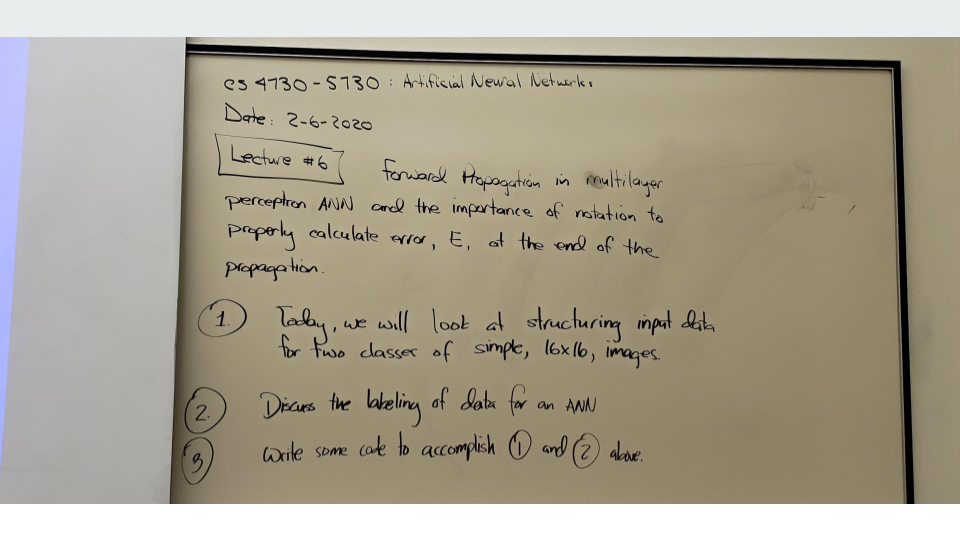 CS 4730 - 5730 : Artificial Neural Networks
Date: 2-6-2020
Lecture #6 Forward Propagation in multilayer
perceptron ANN and the importance of notation to
properly calculate error, E, at the end of the
propagation.
1. Today, we will look at structuring input data
for two classes of simple, 16x16, images.
2. Discuss the labeling of data for an ANN
3 Write some code to accomplish 1 and 2 above.